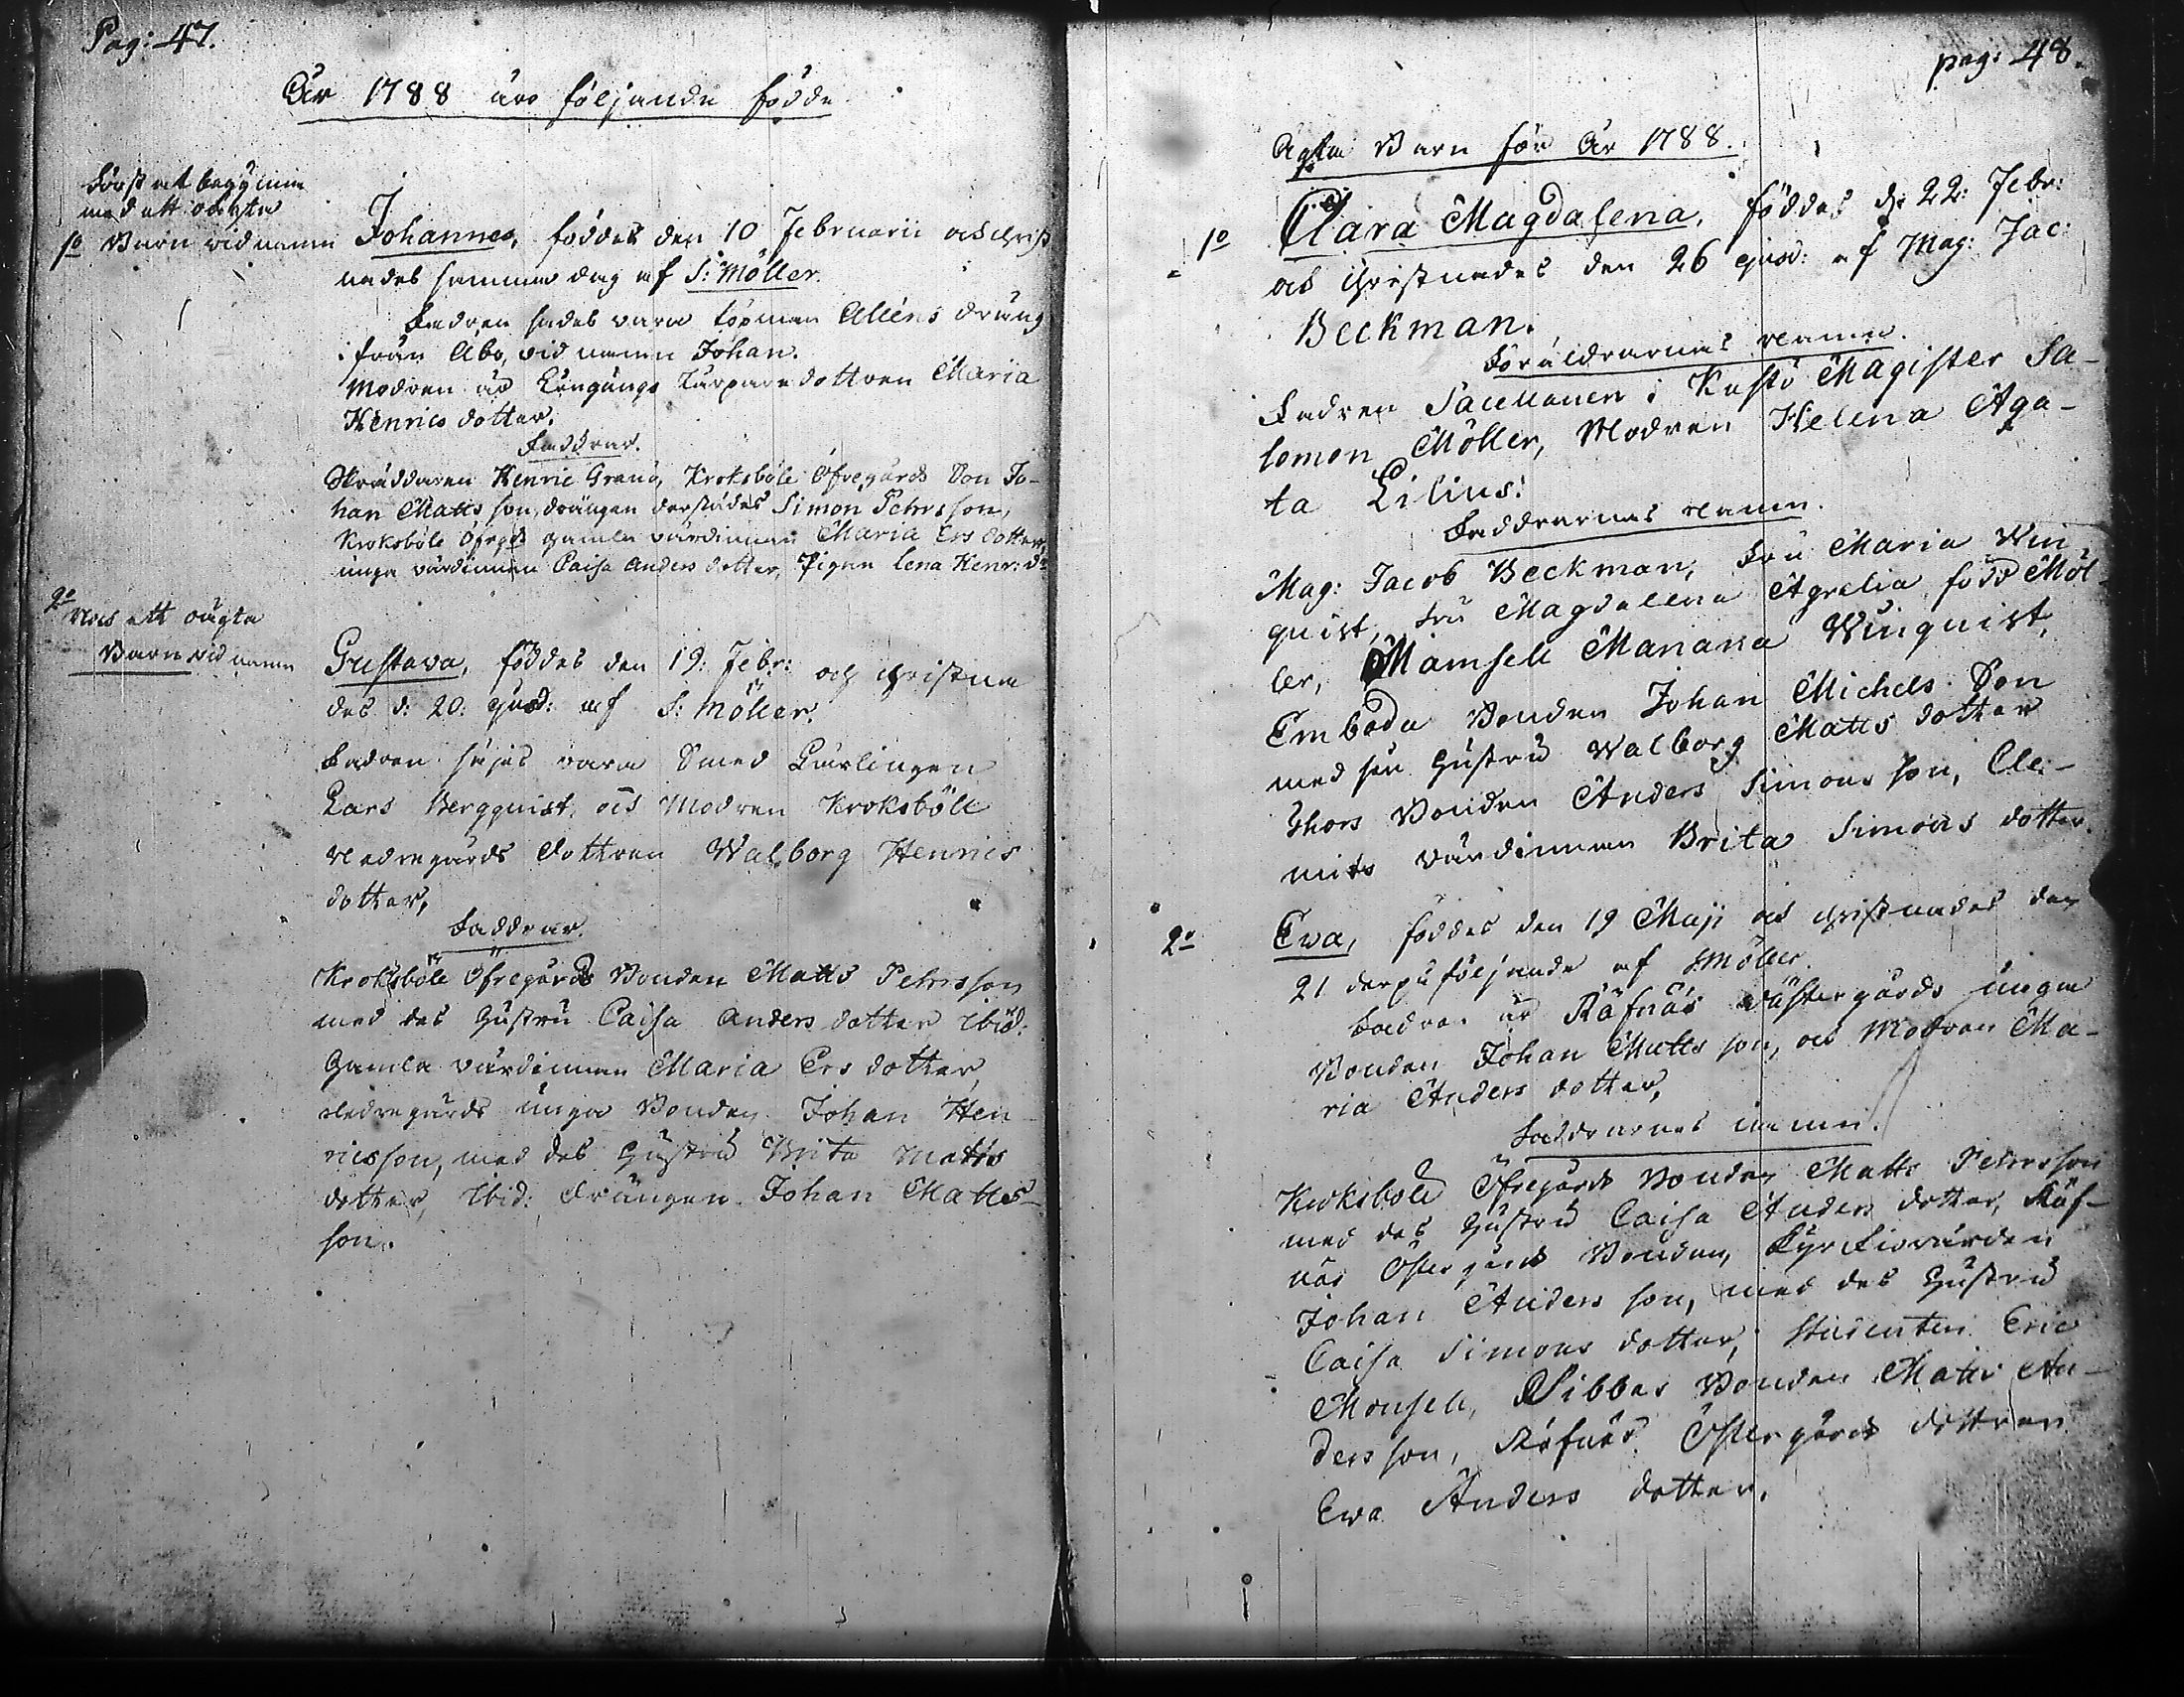 Pag: 47.
År 1788 äro följande födde
Först at begynna
med ett oächta
1o Barn vid namn
Johannes, föddes den 10 Februarii och christ
nades samma dag af S: Möller.
Fadren sades vara Alléns dräng
ifrån Åbo, vid namn Johan.
Modren är Torpare dottren Maria
Henrics dotter.
Faddrar.
Skräddaren Henric Granö, Kroksböle Öfregårds Son Jo-
han Matts son, drängen derstädes Simon Pehrsson,
Kroksböle Öfregds gamla värdinnan Maria Ers dotter,
unga värdinnan Caisa Anders dotter, Pigan Lena Henr: dr
2o
Noch ett oägta
Barn vid namn
Gustava, föddes den 19: Febr: och christna
des d: 20: ejusd: af S: Möller.
Fadren säjes vara Smed Lärlingen
Lars Bergquist, och Modren Kroksböle
Nedregårds dottren Walborg Henrics
dotter,
Faddrar.
Kroksböle Öfregårds Bonden Matts Pehrsson
med des Hustru Caisa Anders dotter Ibid:
Gamla värdinnan Maria Ers dotter,
Nedregårds unga Bonden Johan Hen
ricsson, med des Hustru Brita Matts
dotter, Ibid: Drängen Johan Matts-
son.
pag: 48.
Agta Barn för År 1788.
1o
Clara Magdalena, föddes d: 22: Febr:
och christnades den 26 ejusd: af Mag: Jac:
Beckman.
Föräldrarnas namn.
Fadren Sacellanen i Magister Sa-
lomon Möller, Modren Helena Aga-
ta Lilius.
Faddrarnas namn.
Mag: Jacob Beckman, Fru Maria Win
quist, Fru Magdalena Agrelia född Möl-
ler, Mamsell Mariana Winquist,
Emboda Bonden Johan Michels Son
med sin Hustru Walborg Matts dotter
Thors Bonden Anders Simons son, Cle-
mits värdinnan Brita Simons dotter.
2o
Ewa, föddes den 19 Maji och christnades den
21 derpåföljande af S: Möller.
Fadren är Räfnäs västergårds unga
Bonden Johan Matts son, och Modren Ma-
ria Anders dotter,
Faddrarnas namn.
Kroksböle Öfregårds Bonden Matts Pehrsson
med des Hustru Caisa Anders dotter, Räf-
näs Östergårds Bonden, Kyrckiovärden
Johan Anders son, med des Hustru
Caisa Simons dotter, Studenten Eric
Monsell, Sibbes Bonden Matts An-
ders son, Räfnäs Östergårds dottren
Ewa Anders dotter.